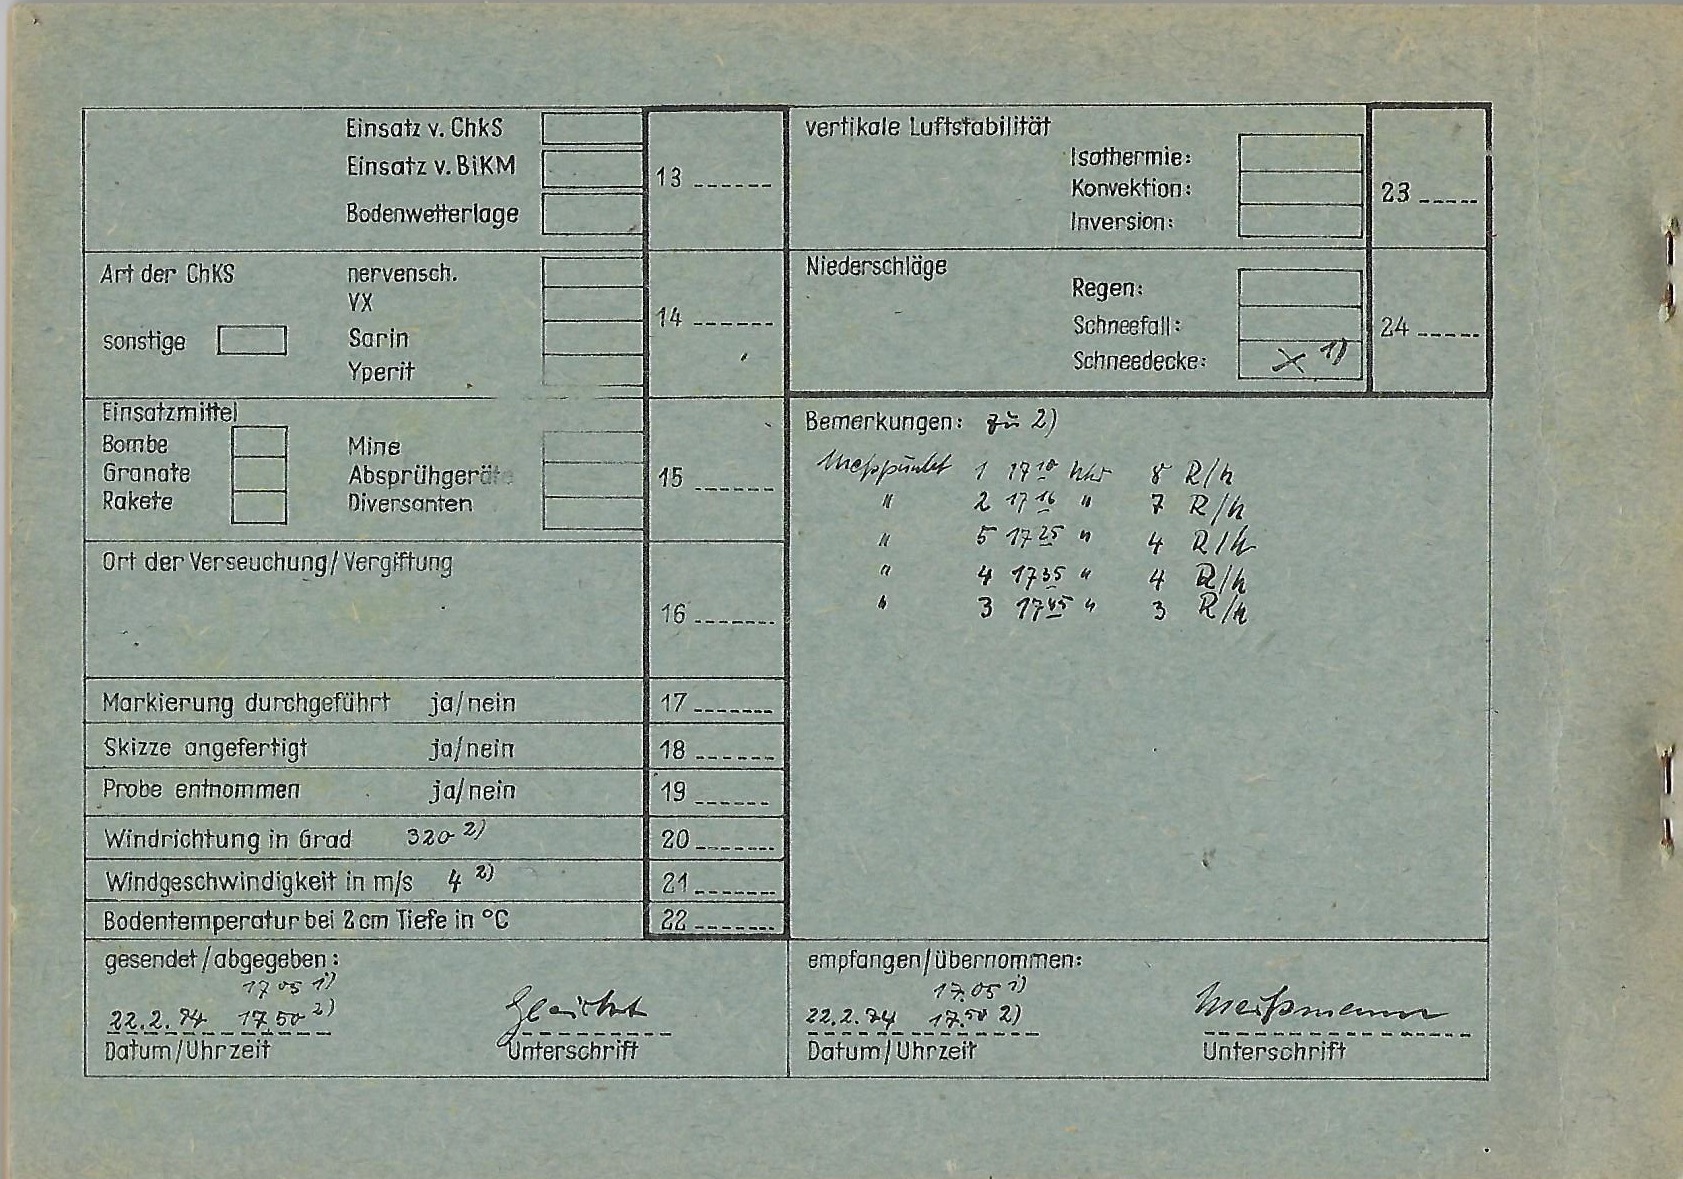 Einsatz v. ChkS
Einsatz v. BiKM
13
Bodenwetterlage
Art der ChKS nervensch.
VX
14
sonstige Sarin
Yperit
Einsatzmittel
Bombe Mine
Granate Absprühgeräte
15
Rakete Diversanten
Ort der Verseuchung/Vergiftung
16
Markierung durchgeführt ja/nein 17
Skizze angefertigt ja/nein 18
Probe entnommen ja/nein 19
Windrichtung in Grad 320 2) 20
Windgeschwindigkeit in m/s 4 2) 21
Bodentemperatur bei 2 cm Tiefe in °C 22
gesendet/abgegeben:
17 05 1)
22.2.74 17.50 2)
Datum/Uhrzeit Unterschrift
vertikale Luftstabilität
Isothermie:
Konvektion: 23
Inversion:
Niederschläge
Regen:
Schneefall: 24
Schneedecke: X 1)
Bemerkungen: zu 2)
Meßpunkt 1 17 10 Uhr 8 R/h
" 2 17 16 " 7 R/h
" 5 17 25 " 4 R/h
" 4 17 35 " 4 R/h
" 3 17 45 " 3 R/h
empfangen/übernommen:
17.05 1)
22.2.74 17.50 2) Meißmann
Datum/Uhrzeit Unterschrift